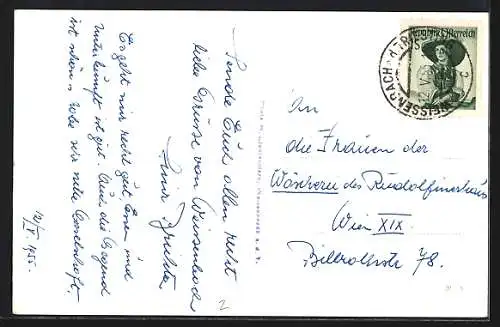 Sende Euch allen recht
liebe Grüsse von Weissenbach
Eure
Es geht mir recht gut, Essen und
Unterkunft ist gut. Auch die Gegend
ist schön. Habe sehr nette Gesellschaft.
12/V. 1955.
2
An
die Frauen der
Wäscherei des Rudolfinerhaus
Wien XIX.
Billrothstr. 78.
Republik Österreich
WEISSENBACH A. D. TRIESTING